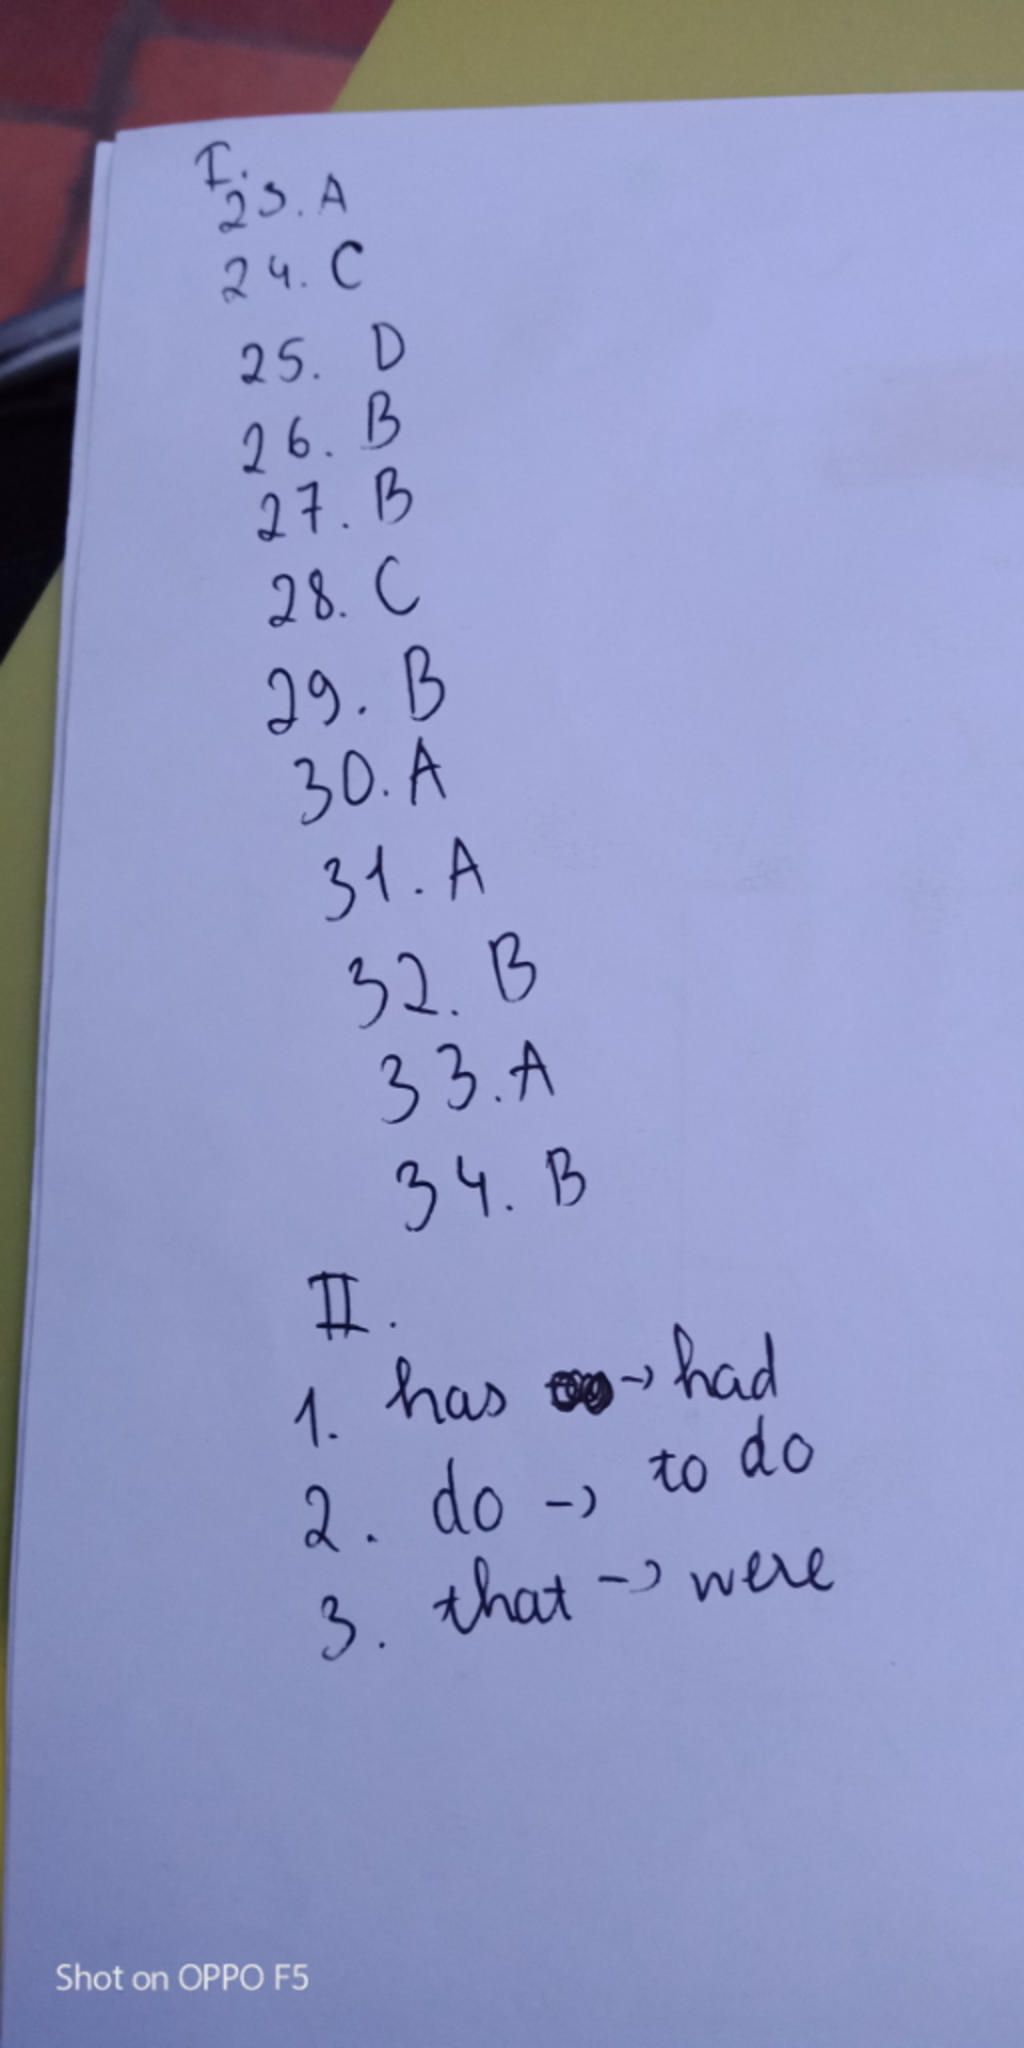 I.
23. A
24. C
25. D
26. B
27. B
28. C
29. B
30. A
31. A
32. B
33. A
34. B
II.
1. has -> had
2. do -> to do
3. that -> were
Shot on OPPO F5